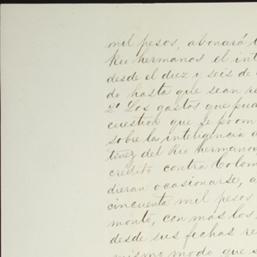 mil pesos, abonará
hermanos el int
desde el diez y seis de
do hasta que sean
2º Los gastos que pue
cuestion que se prom
sobre la inteligencia
tinez del Rio hermano
crédito contra
dieran ocasionarse, a
cincuenta mil pesos
monte, con más los
desde sus fichas re
mismo modo que s